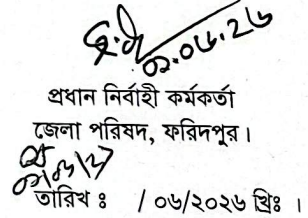 ০১.০৬.২৬
প্রধান নির্বাহী কর্মকর্তা
জেলা পরিষদ, ফরিদপুর।
তারিখ ঃ /০৬/২০২৬ খ্রিঃ ।